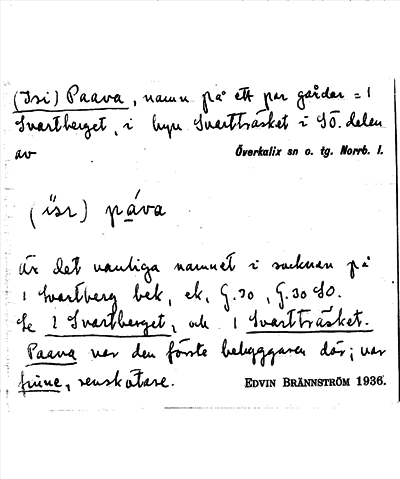 (Isi) Paava, namn på ett par gårdar = 1
Svartberget, i byn Svartträsket i SÖ. delen
av Överkalix sn o. tg. Norrb. l.
páva
är det vanliga namnet i socknen på
1 Svartberg bek, ek, G.30, G.30 SO.
Se 2 Svartberget, och 1 Svartträsket.
Paava var den förste bebyggaren där; var
finne, renskötare.
EDVIN BRÄNNSTRÖM 1936.